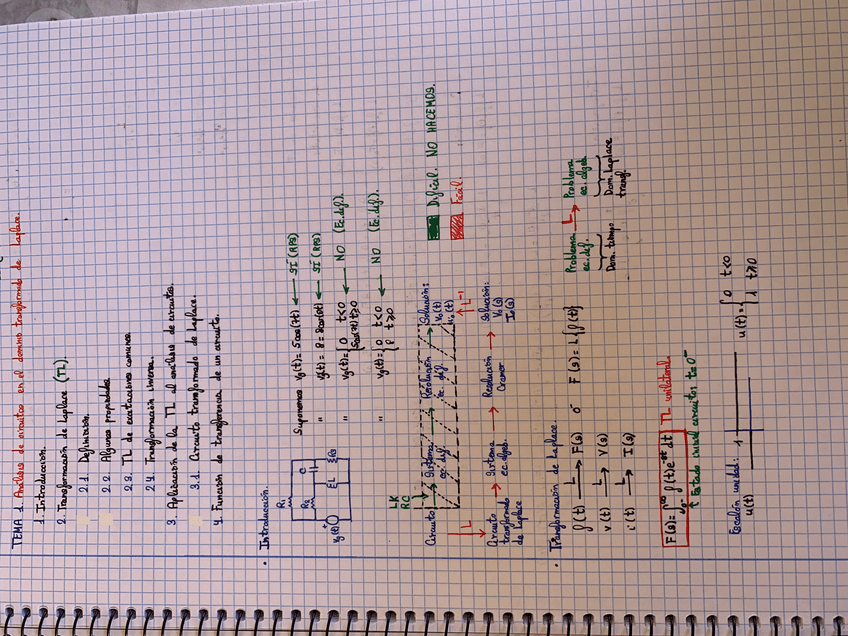 TEMA 1. Análisis de circuitos en el dominio transformado de Laplace.
1. Introducción.
2. Transformación de Laplace (TL).
2.1. Definición.
2.2. Algunas propiedades
2.3. TL de excitaciones comunes.
2.4. Transformación inversa.
3. Aplicación de la TL al análisis de circuitos.
3.1. Circuito transformado de Laplace.
4. Función de transferencia de un circuito.
• Introducción.
R1
R2
C
L
vg(t)
Suponemos vg(t) = 5cos(7t) ← SÍ (RPS)
" vg(t) = 8 = 8cos(0t) ← SÍ (RPS)
" vg(t) = { 0 t<0
5cos(7t) t≥0 ← NO (Ec. dif.).
" vg(t) = { 0 t<0
8 t≥0 ← NO (Ec. dif.).
LK
RC
Circuito → Sistema ec. dif. → Resolución ec. dif. → Solución:
Vo(t)
Difícil. NO HACEMOS.
Fácil.
L
L⁻¹
Circuito transformado de Laplace → Sistema ec. algeb. → Resolución Cramer → Solución:
Vo(s)
Io(s)
• Transformación de Laplace.
f(t) L→ F(s) ó F(s) = L{f(t)}
v(t) L→ V(s)
i(t) L→ I(s)
Problema ec. dif. L→ Problema ec. algeb.
Dom. tiempo
Dom. Laplace transf.
F(s) = ∫₀₋^∞ f(t)e^-st dt TL unilateral.
↑ Estado inicial circuitos t=0⁻
Escalón unidad:
u(t)
1
u(t) = { 0 t<0
1 t≥0